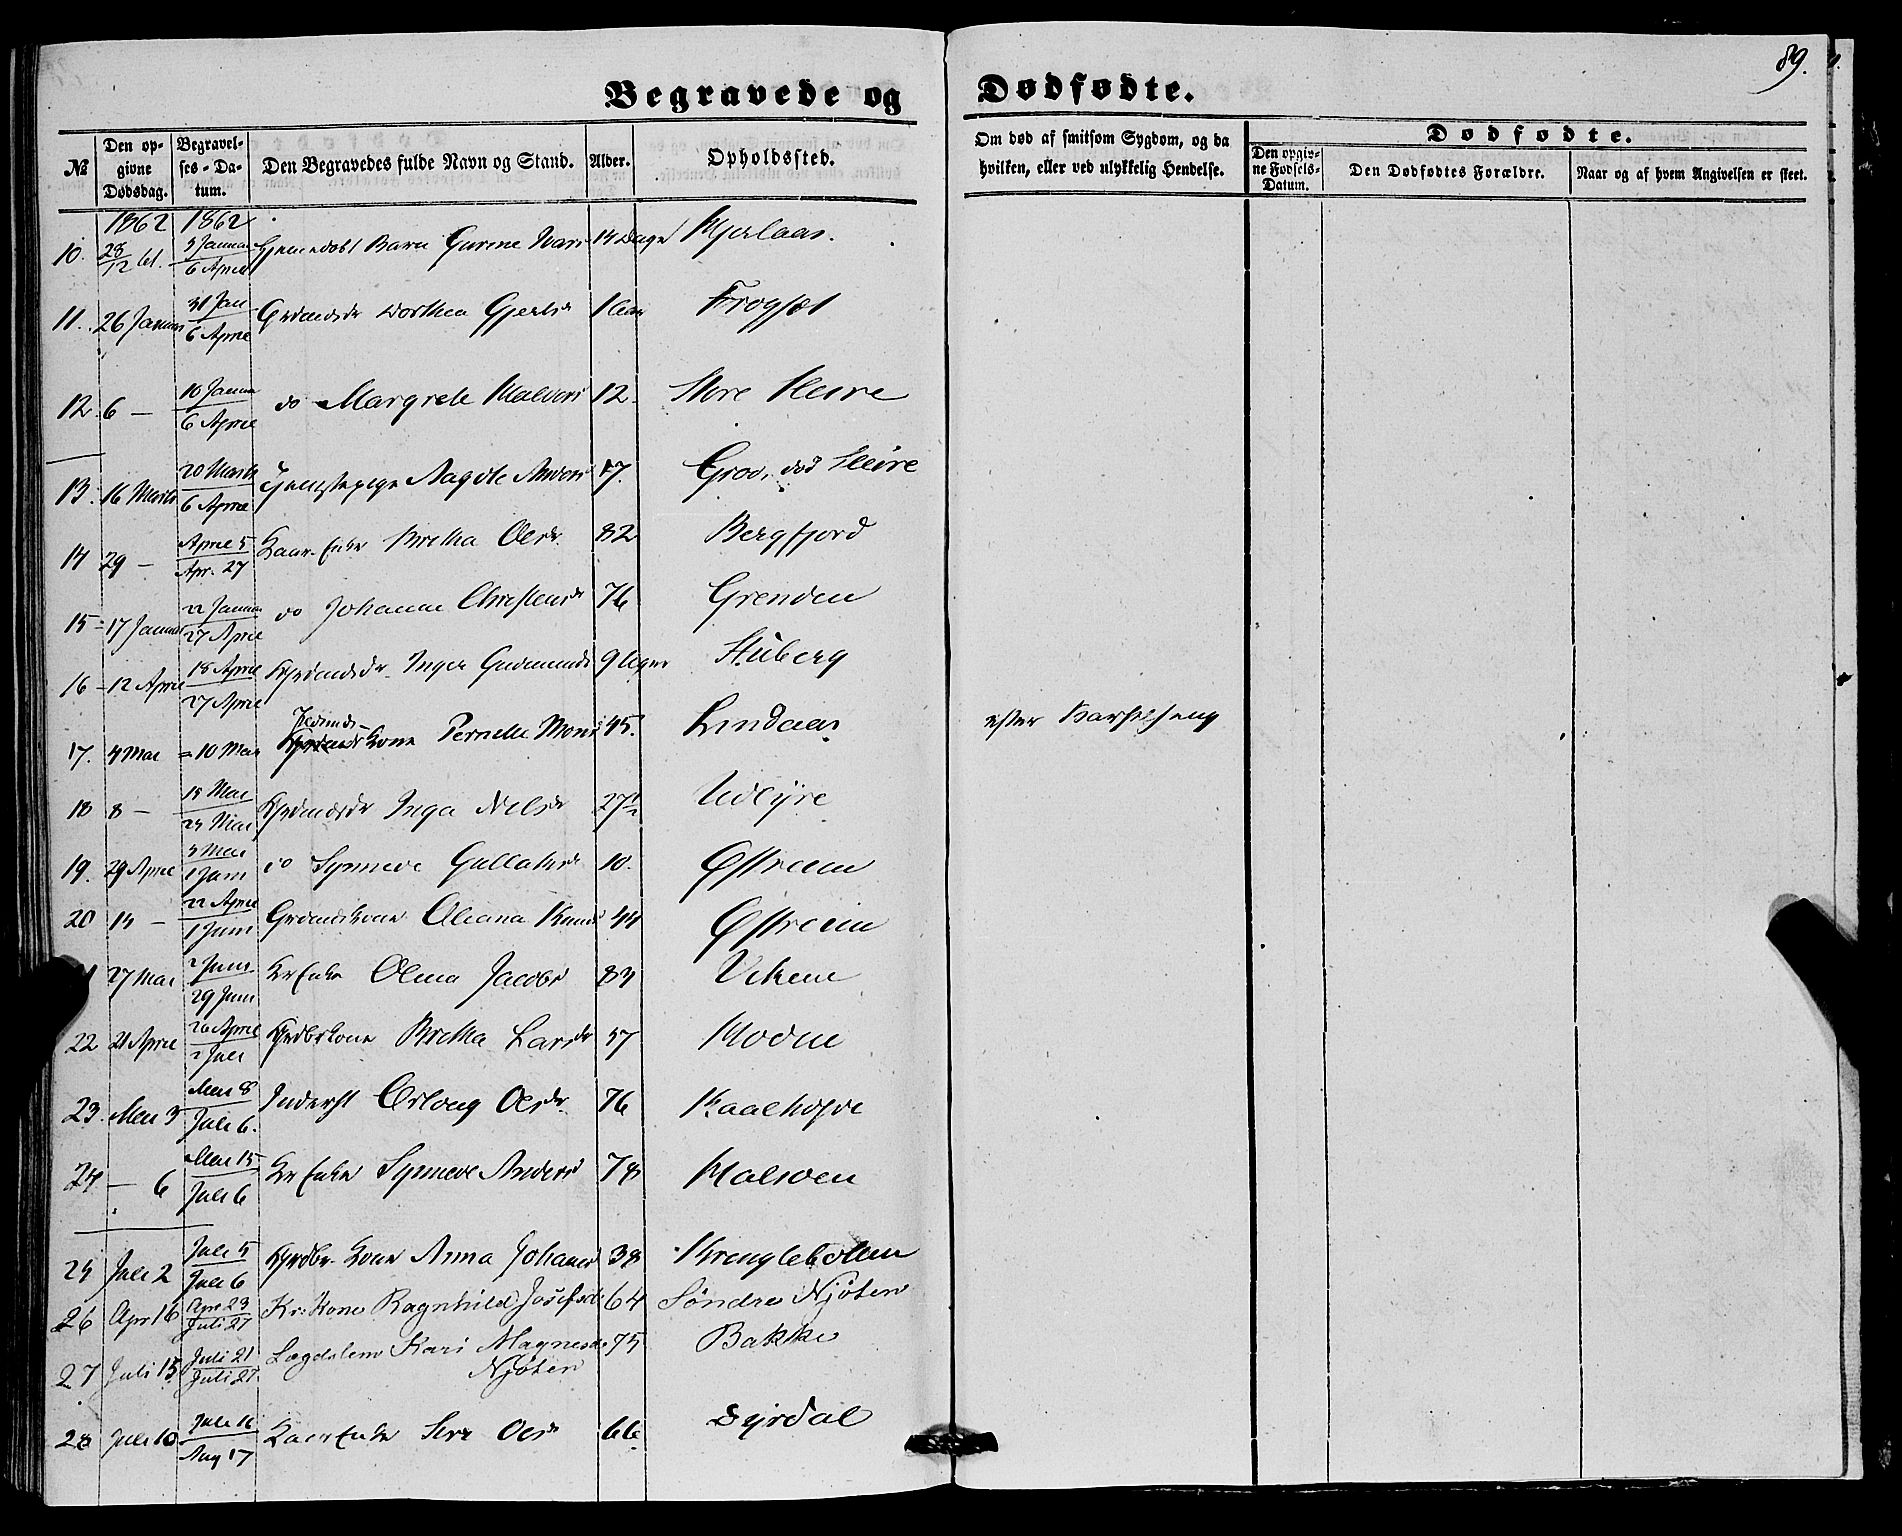 89.
Begravede og Dødfødte.
№
Den opgivne Dødsdag.
Begravelses-Datum.
Den Begravedes fulde Navn og Stand.
Alder.
Opholdssted.
Om død af smitsom Sygdom, og da hvilken, eller ved ulykkelig Hendelse.
Dødfødte.
Den opgivne Fødsels-Datum.
Den Dødfødtes Forældre.
Naar og af hvem Angivelsen er skeet.
1862 1862
10. 28/12 61. 5 Januar 6 April Hjemmedøbt Barn Gurine 14 Dage
11. 26 Januar 31 Jan 6 April Grdmdsdr Dorthea Gjertsdr 1 Aar Frogset
12. 6 — 10 Januar 6 April do Margrete Halvors 12. Store Heire
13. 16 Marts 20 Marts 6 April Tjenstepige Aagote Anders 17. Grov, død Heire
14 29 — April 5 Apr. 27 Kaar-Enke Britha Olsdr. 82 Bergfjord
15 17 Januar 22 Januar 27 April do Johanne Christensdr 76 Grenden
16 12 April 18 April 27 April Inger Gudmunds 9 Uger Stuberg
17. 4 Mai 10 Mai Kone Pernelle Mons 45. Lindaas efter Barselseng
18 8 — 15 Mai 25 Mai Inga Nelsdr 27 Udeyre
19. 29 April 1 Juni do Synneve Gullaksdr 10. Østreim
20 15 — 22 April 1 Juni Grdmdskone Oleana Knuds 44 Østreim
27 Mai 2 Juni 29 Juni Kr Enke Olena Jacobs 84 Vikene
22 21 April 26 April 2 Juli Kone Britha Larsdr 57
23. Mai 3 Mai 8 Juli 6. Inderst Olsdr. 76
24 — 6 Mai 15 Juli 6 Kr Enke Synneve Anders 78
25 Juli 2 Juli 5 Juli 6 Kone Anna Johannes 38 Krengleboten
26 Apr 16 Apr 23 Juli 27 Kr. Kone Ragnhild Josefsdr 64 Søndre Njøten
27 Juli 15 Juli 21 Juli 27 Lægdslem Kari Magnesdr 75 Bakke
Njøten
28 Juli 10 Juli 16 Aug 17 Kaar Enke Siri Olsdr 66 Dyrdal